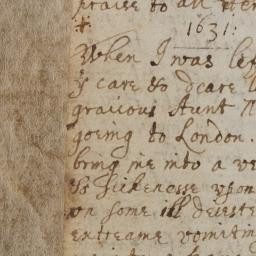 praise to all eter
1631:
When I was lef
ye care & deare l
graicous Aunt
goeing to London.
bring me into a ve
& sickenesse upon
on some ill deieste
extreame vomitin